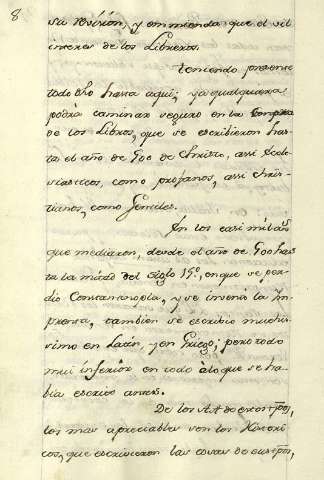 8
su revision, y enmienda que el vil
interes de los Libreros.
Teniendo presente
todo dho hasta aqui; ya qualquiera
podrá caminar seguro en la compra
de los Libros, que se escribieron has-
ta el año de 600 de Christo, assi Ecle-
siasticos, como profanos, assi Chris-
tianos, como Gentiles.
En los casi mil añs
que mediaron, desde el año de 600 has-
ta la mitad del siglo 15º, en que se per-
dio Constantinopla, y se inventó la Im-
prensa, tambien se escribio muchis-
simo en Latin, y en Griego; pero todo
mui inferior en todo à lo que se ha-
bia escrito antes.
De los AA de estos tpõs,
los mas apreciables son los Histori-
cos, que escribieron las cosas de sus tpõs,